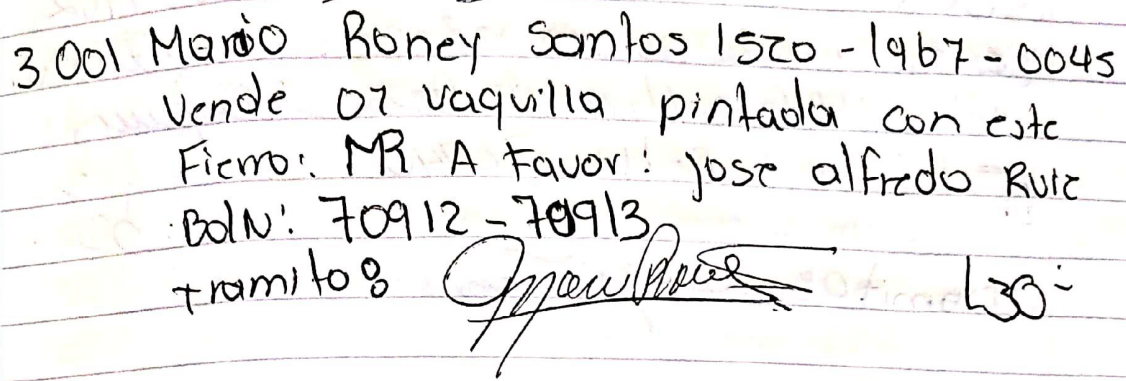 3001 Mario Roney Santos 1520-1967-0045
Vende 01 vaquilla pintada con este
Fierro: MR A Favor: Jose alfredo Ruiz
BolN: 70912-70913
tramito: L30-